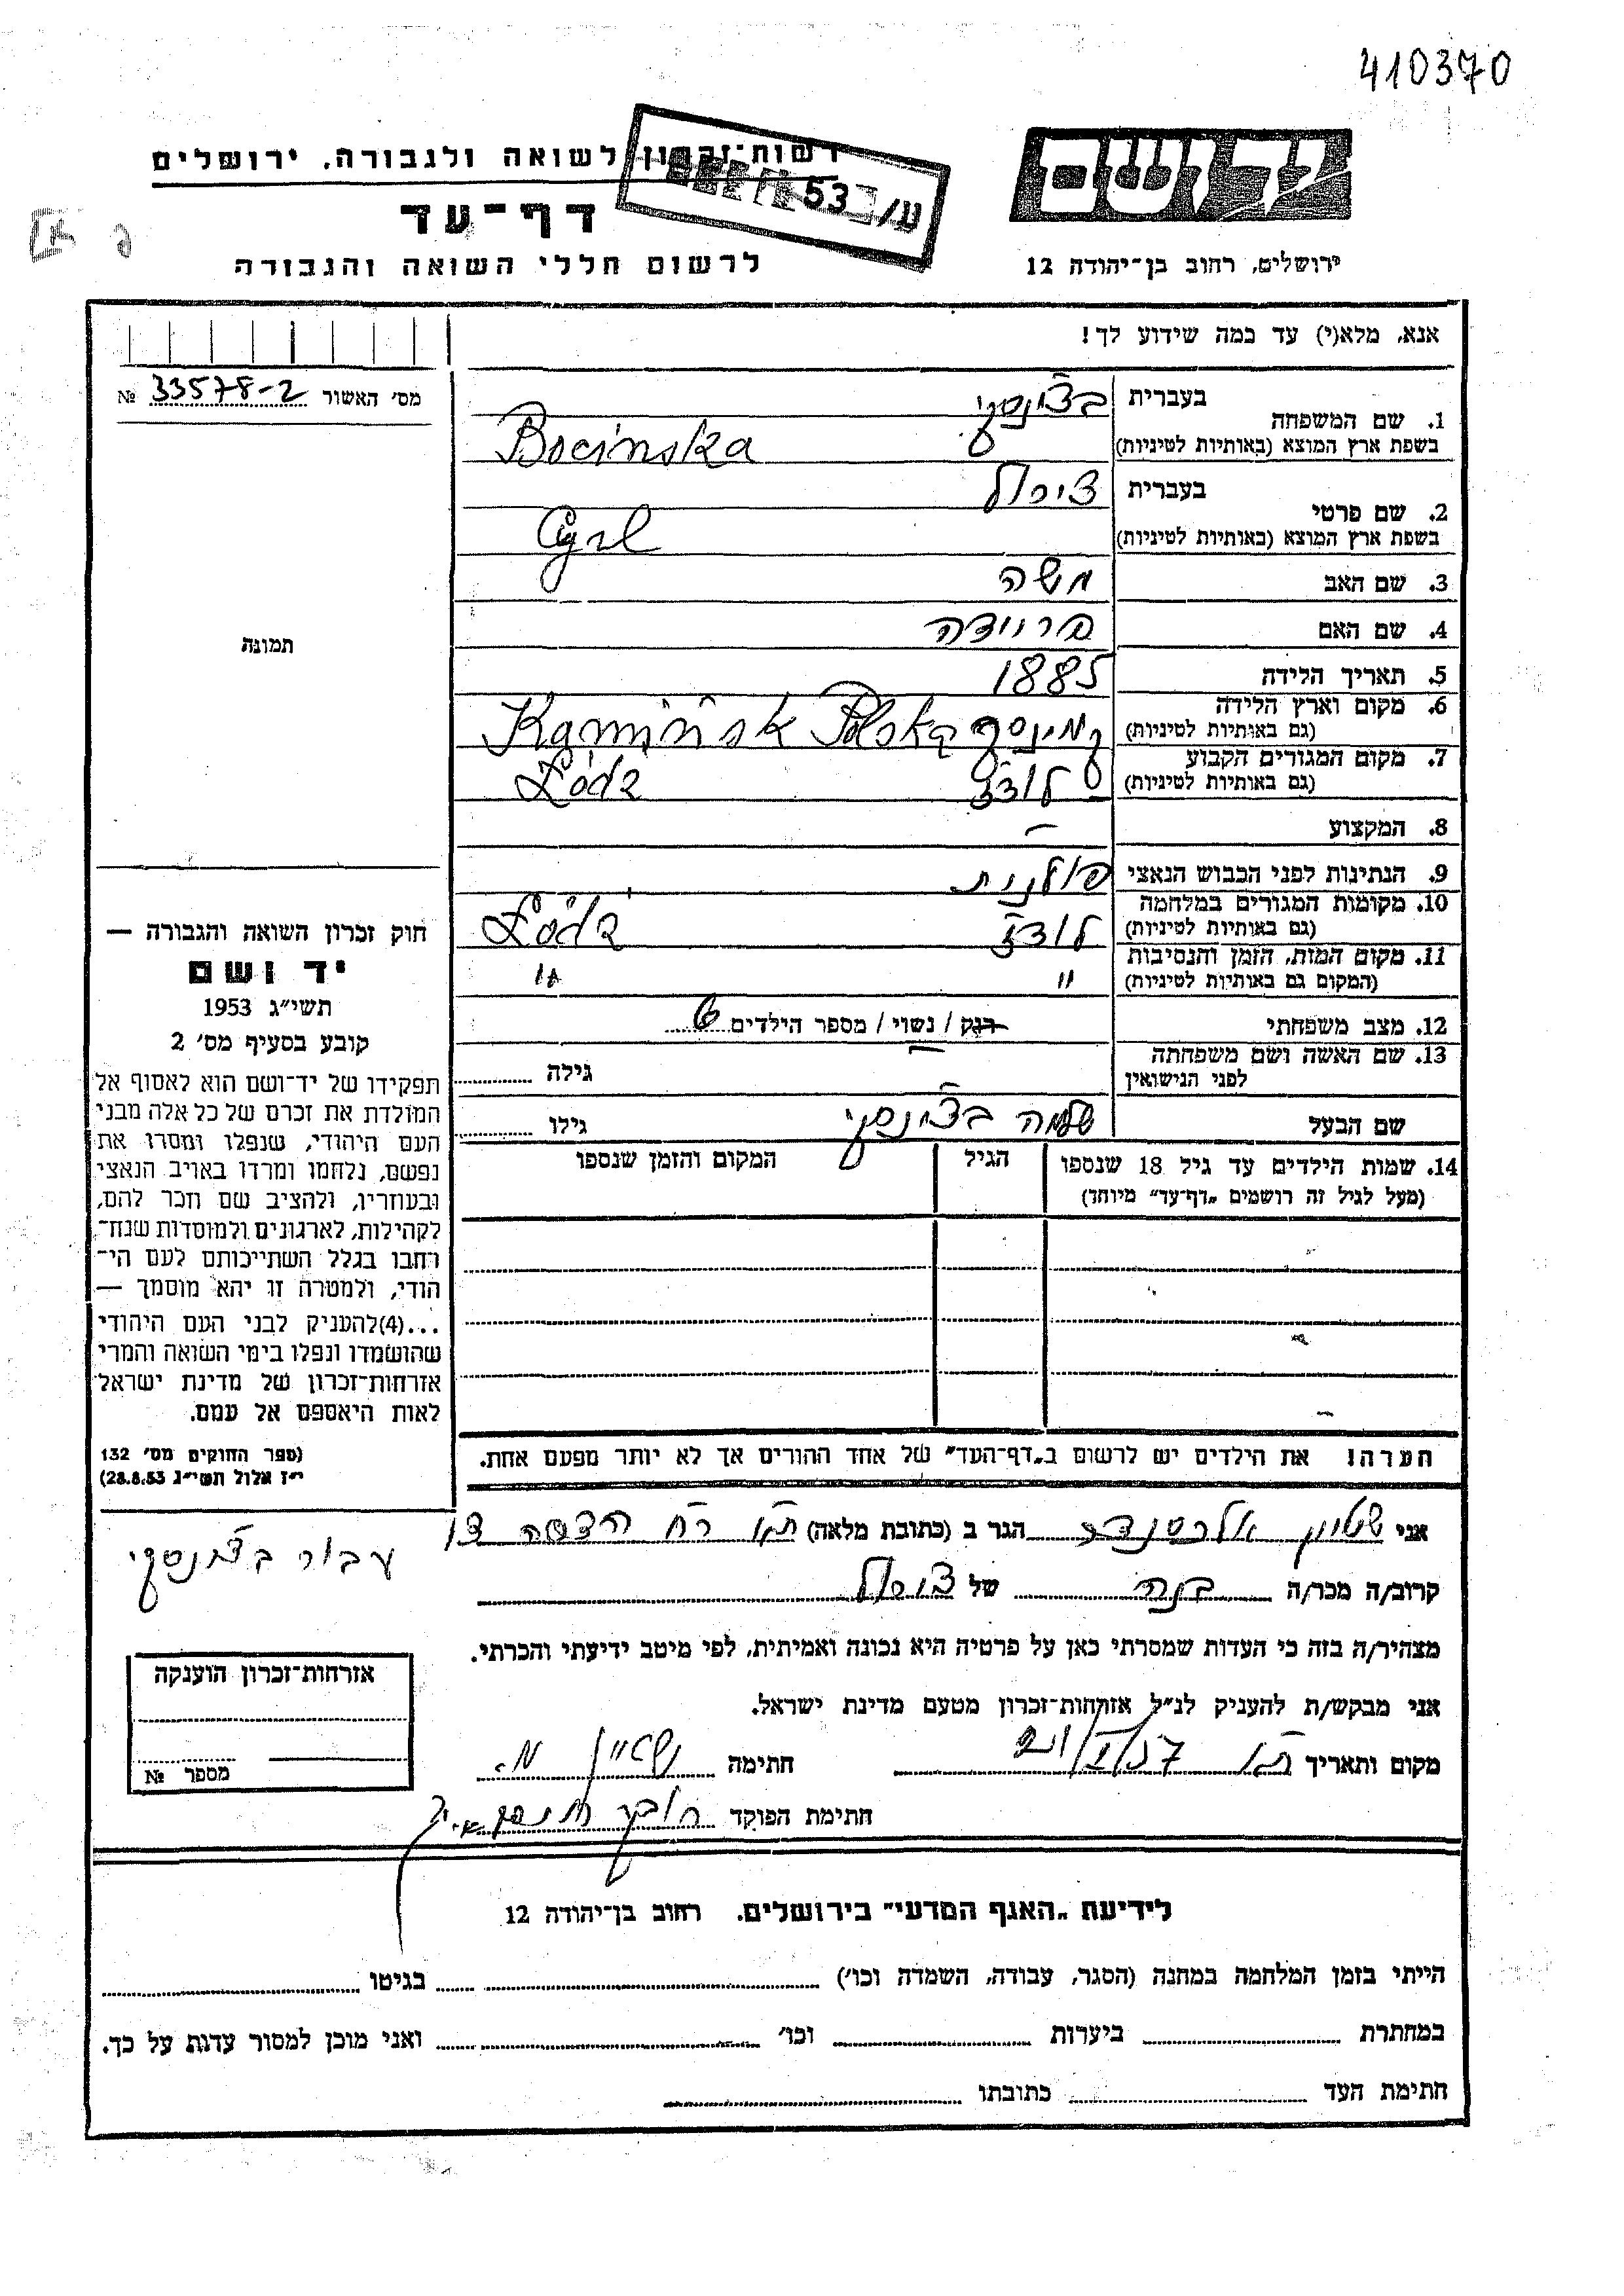 410370
רשות-זכרון לשואה ולגבורה. ירושלים
דף-עד
לרשום חללי השואה והגבורה
יד ושם
ירושלים, רחוב בן-יהודה 12
53 ע/
אנא, מלא(י) עד כמה שידוע לך!
מס' האשור 33578-2 №
1. שם המשפחה
בעברית בצ'ינסקי
בשפת ארץ המוצא (באותיות לטיניות) Bocinska
2. שם פרטי
בעברית צירל
בשפת ארץ המוצא (באותיות לטיניות) Cyrl
3. שם האב משה
4. שם האם פריידה
5. תאריך הלידה 1885
6. מקום וארץ הלידה
(גם באותיות לטיניות) קמינסק Polska Kamińsk
7. מקום המגורים הקבוע
(גם באותיות לטיניות) לודז Łódz
8. המקצוע –
9. הנתינות לפני הכבוש הנאצי פולנית
10. מקומות המגורים במלחמה
(גם באותיות לטיניות) לודז Łódz
11. מקום המות, הזמן והנסיבות
(המקום גם באותיות לטיניות) " "
12. מצב משפחתי רנק / נשוי / מספר הילדים 6
13. שם האשה ושם משפחתה
לפני הנישואין גילה
שם הבעל שלמה בצ'ינסקי גילו
14. שמות הילדים עד גיל 18 שנספו
(מעל לגיל זה רושמים "דף-עד" מיוחד)
הגיל
המקום והזמן שנספו
תמונה
חוק זכרון השואה והגבורה —
יד ושם
תשי"ג 1953
קובע בסעיף מס' 2
תפקידו של יד-ושם הוא לאסוף אל
המולדת את זכרם של כל אלה מבני
העם היהודי, שנפלו ומסרו את
נפשם, נלחמו ומרדו באויב הנאצי
ובעוזריו, ולהציב שם וזכר להם,
לקהילות, לארגונים ולמוסדות שנח-
רחבו בגלל השתייכותם לעם הי-
הודי, ולמטרה זו יהא מוסמך —
...(4)להעניק לבני העם היהודי
שהושמדו ונפלו בימי השואה והמרי
אזרחות-זכרון של מדינת ישראל
לאות היאספם אל עמם.
(ספר החוקים מס' 132
י"ז אלול תשי"ג 28.8.53)
הערה! את הילדים יש לרשום ב"דף-העד" של אחד ההורים אך לא יותר מפעם אחת.
אני אלכסנדר הגר ב (כתובת מלאה) ת"א רח הדסה
קרוב/ה מכר/ה בנה של צירל
עבור בצ'ינסקי
מצהיר/ה בזה כי העדות שמסרתי כאן על פרטיה היא נכונה ואמיתית, לפי מיטב ידיעתי והכרתי.
אני מבקש/ת להעניק לנ"ל אזרחות-זכרון מטעם מדינת ישראל.
מקום ותאריך ת"א חתימה
חתימת הפוקד
אזרחות-זכרון הוענקה
מספר №
לידיעת "האגף המדעי" בירושלים. רחוב בן-יהודה 12
הייתי בזמן המלחמה במחנה (הסגר, עבודה, השמדה וכו') בגיטו
במחתרת ביערות וכו' ואני מוכן למסור עדות על כך.
חתימת העד כתובתו